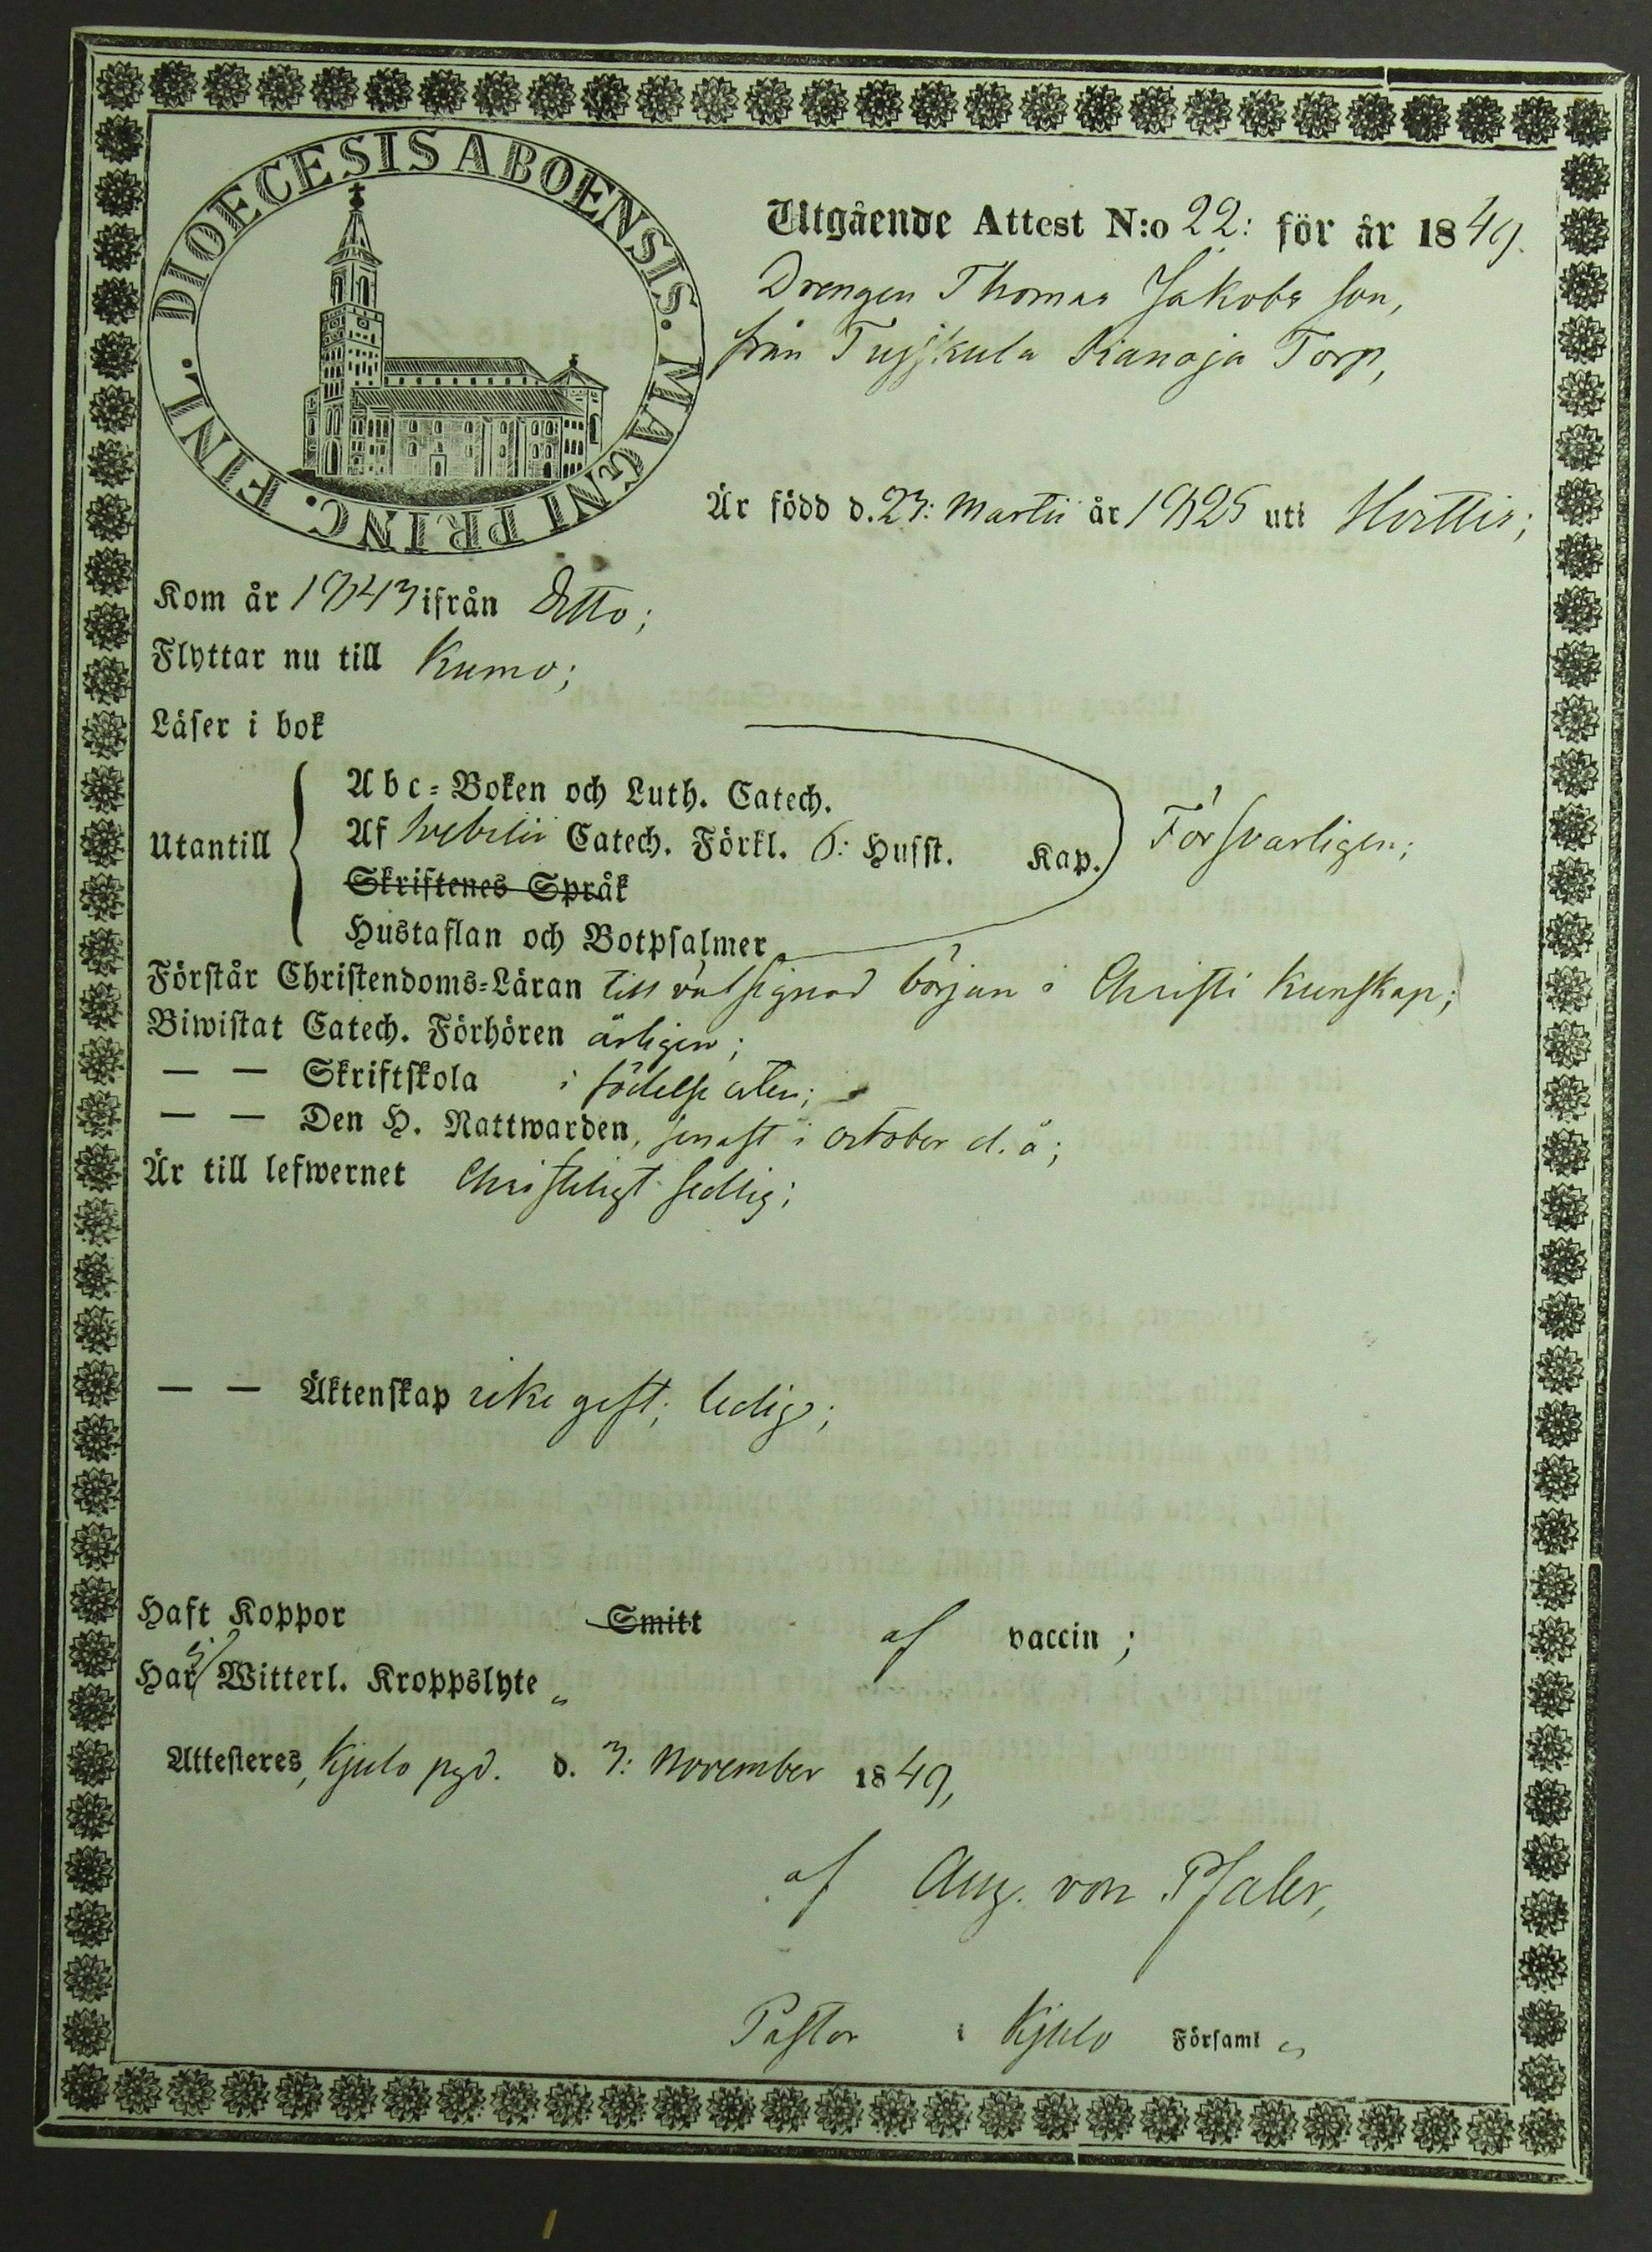 DIOECESIS ABOENSIS. MAGNI PRINC. FINL.
Utgående Attest N:o 22: för år 1849.
Drengen Thomas Jakobs son,
från Tuiskula Torp,
Är född d. 23: Martii år 1825 uti Hvittis;
Kom år 1843 ifrån Ditto;
Flyttar nu till Kumo;
Läser i bok
Utantill
Abc-Boken och Luth. Catech.
Af Svebelii Catech. Förkl. 6: Hufst. Kap. Försvarligen;
Skriftenes Språk
Hustaflan och Botpsalmer
Förstår Christendoms-Läran till välsignad början i Christi kunskap;
Biwistat Catech. Förhören årligen;
— — Skriftskola i födelse orten;
— — Den H. Nattwarden, senast i october d. å;
Är till lefwernet Christeligt sedlig;
— — Äktenskap icke gift; ledig;
Haft Koppor Smitt af vaccin;
Har ej Witterl. Kroppslyte
Attesteres, Kjulo pgd. d. 3: November 1849,
af Aug. von Pfaler,
Pastor i Kjulo Församl